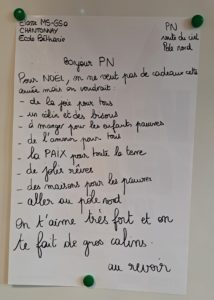 Classe MS-GS
CHANTONNAY
Ecole Béthanie
PN
route du ciel
Pole nord
Bonjour PN
Pour NOEL, on ne veut pas de cadeaux cette
année mais on voudrait :
- de la joie pour tous
- un câlin et des bisous
- à manger pour les enfants pauvres
- de l'amour pour tous
- la PAIX pour toute la terre
- de jolis rêves
- des maisons pour les pauvres
- aller au pole nord
On t'aime très fort et on
te fait de gros calins.
au revoir